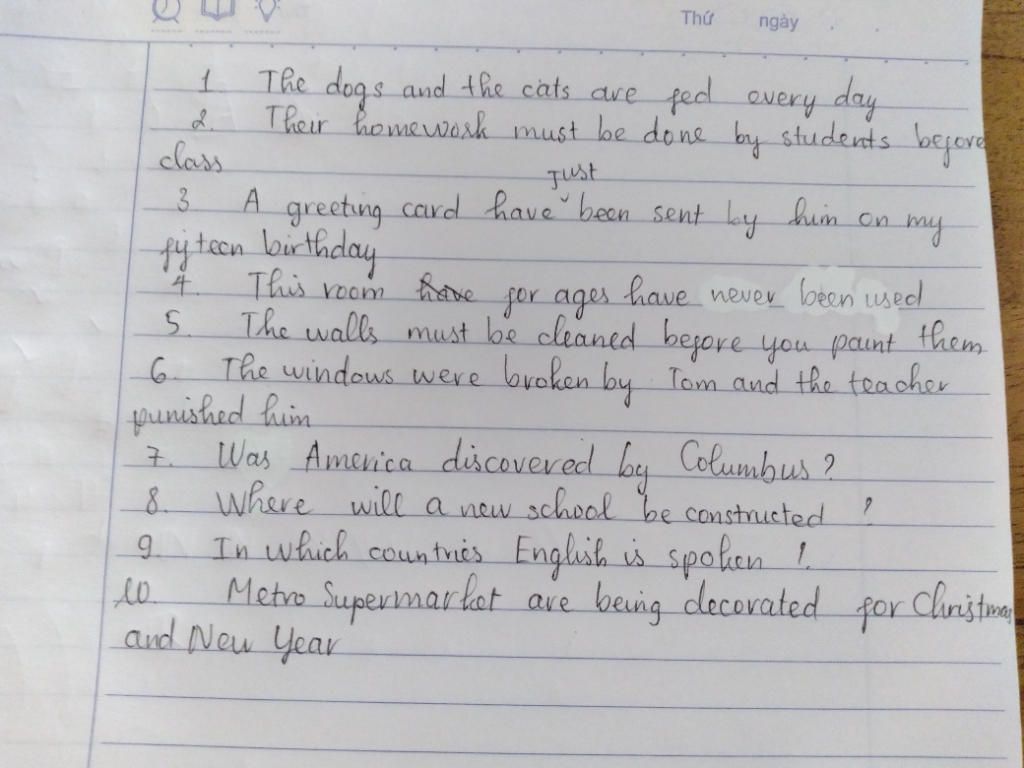 Thứ ngày . .
1 The dogs and the cats are fed every day
2. Their homework must be done by students before
class
just
3 A greeting card have ˇ been sent by him on my
fifteen birthday
4. This room have for ages have never been used
5. The walls must be cleaned before you paint them
6. The windows were broken by Tom and the teacher
punished him
7. Was America discovered by Columbus ?
8. Where will a new school be constructed ?
9. In which countries English is spoken !
10. Metro Supermarket are being decorated for Christmas
and New Year